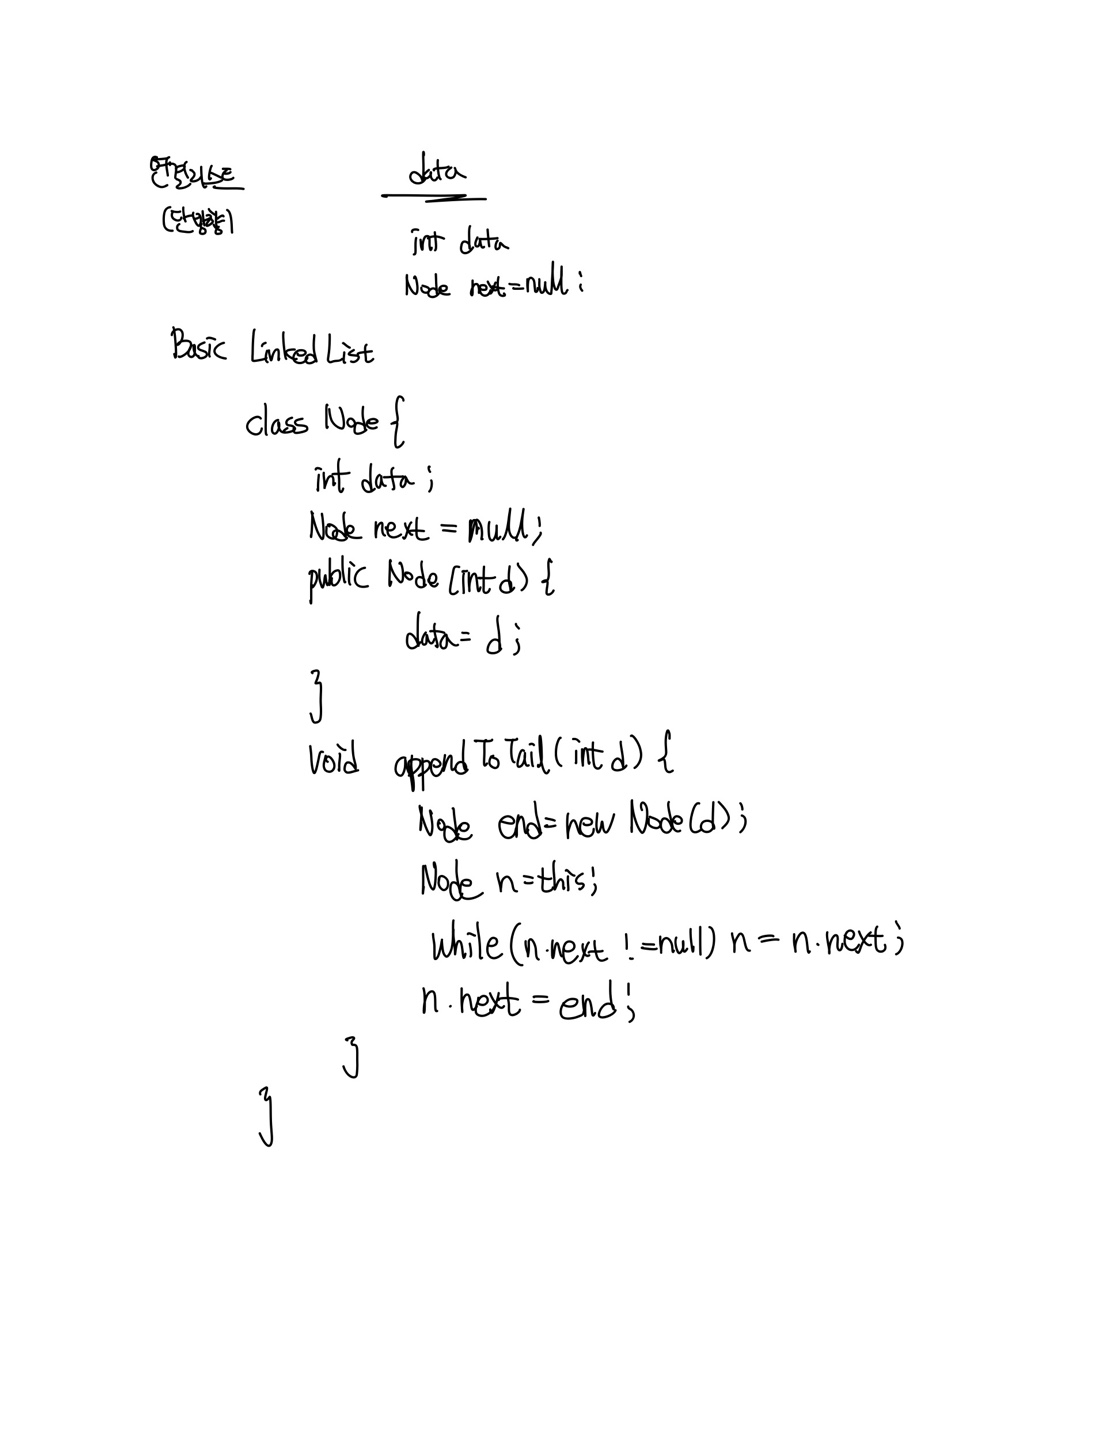 연결리스트
(단방향)
data
int data
Node next=null;
Basic Linked List
class Node {
int data;
Node next = null;
public Node (int d) {
data= d;
}
void appendToTail(int d) {
Node end=new Node(d);
Node n=this;
while(n.next !=null) n= n.next;
n.next = end;
}
}